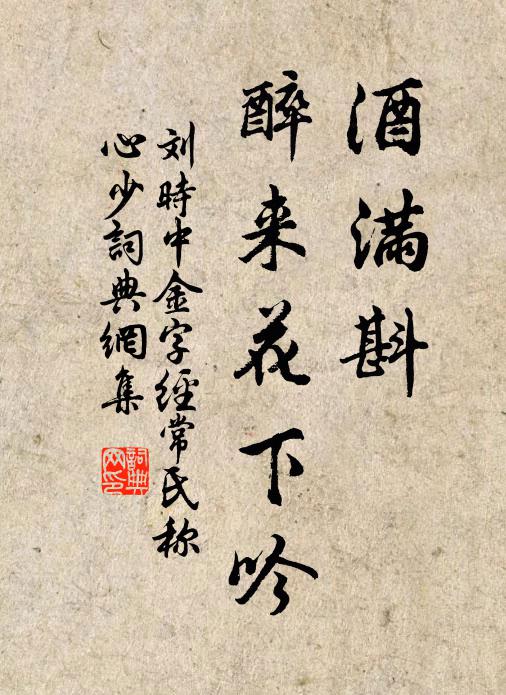 酒滿斟
醉来花下吟
刘時中金字經常氏称
心少詞典網集
詞典网印